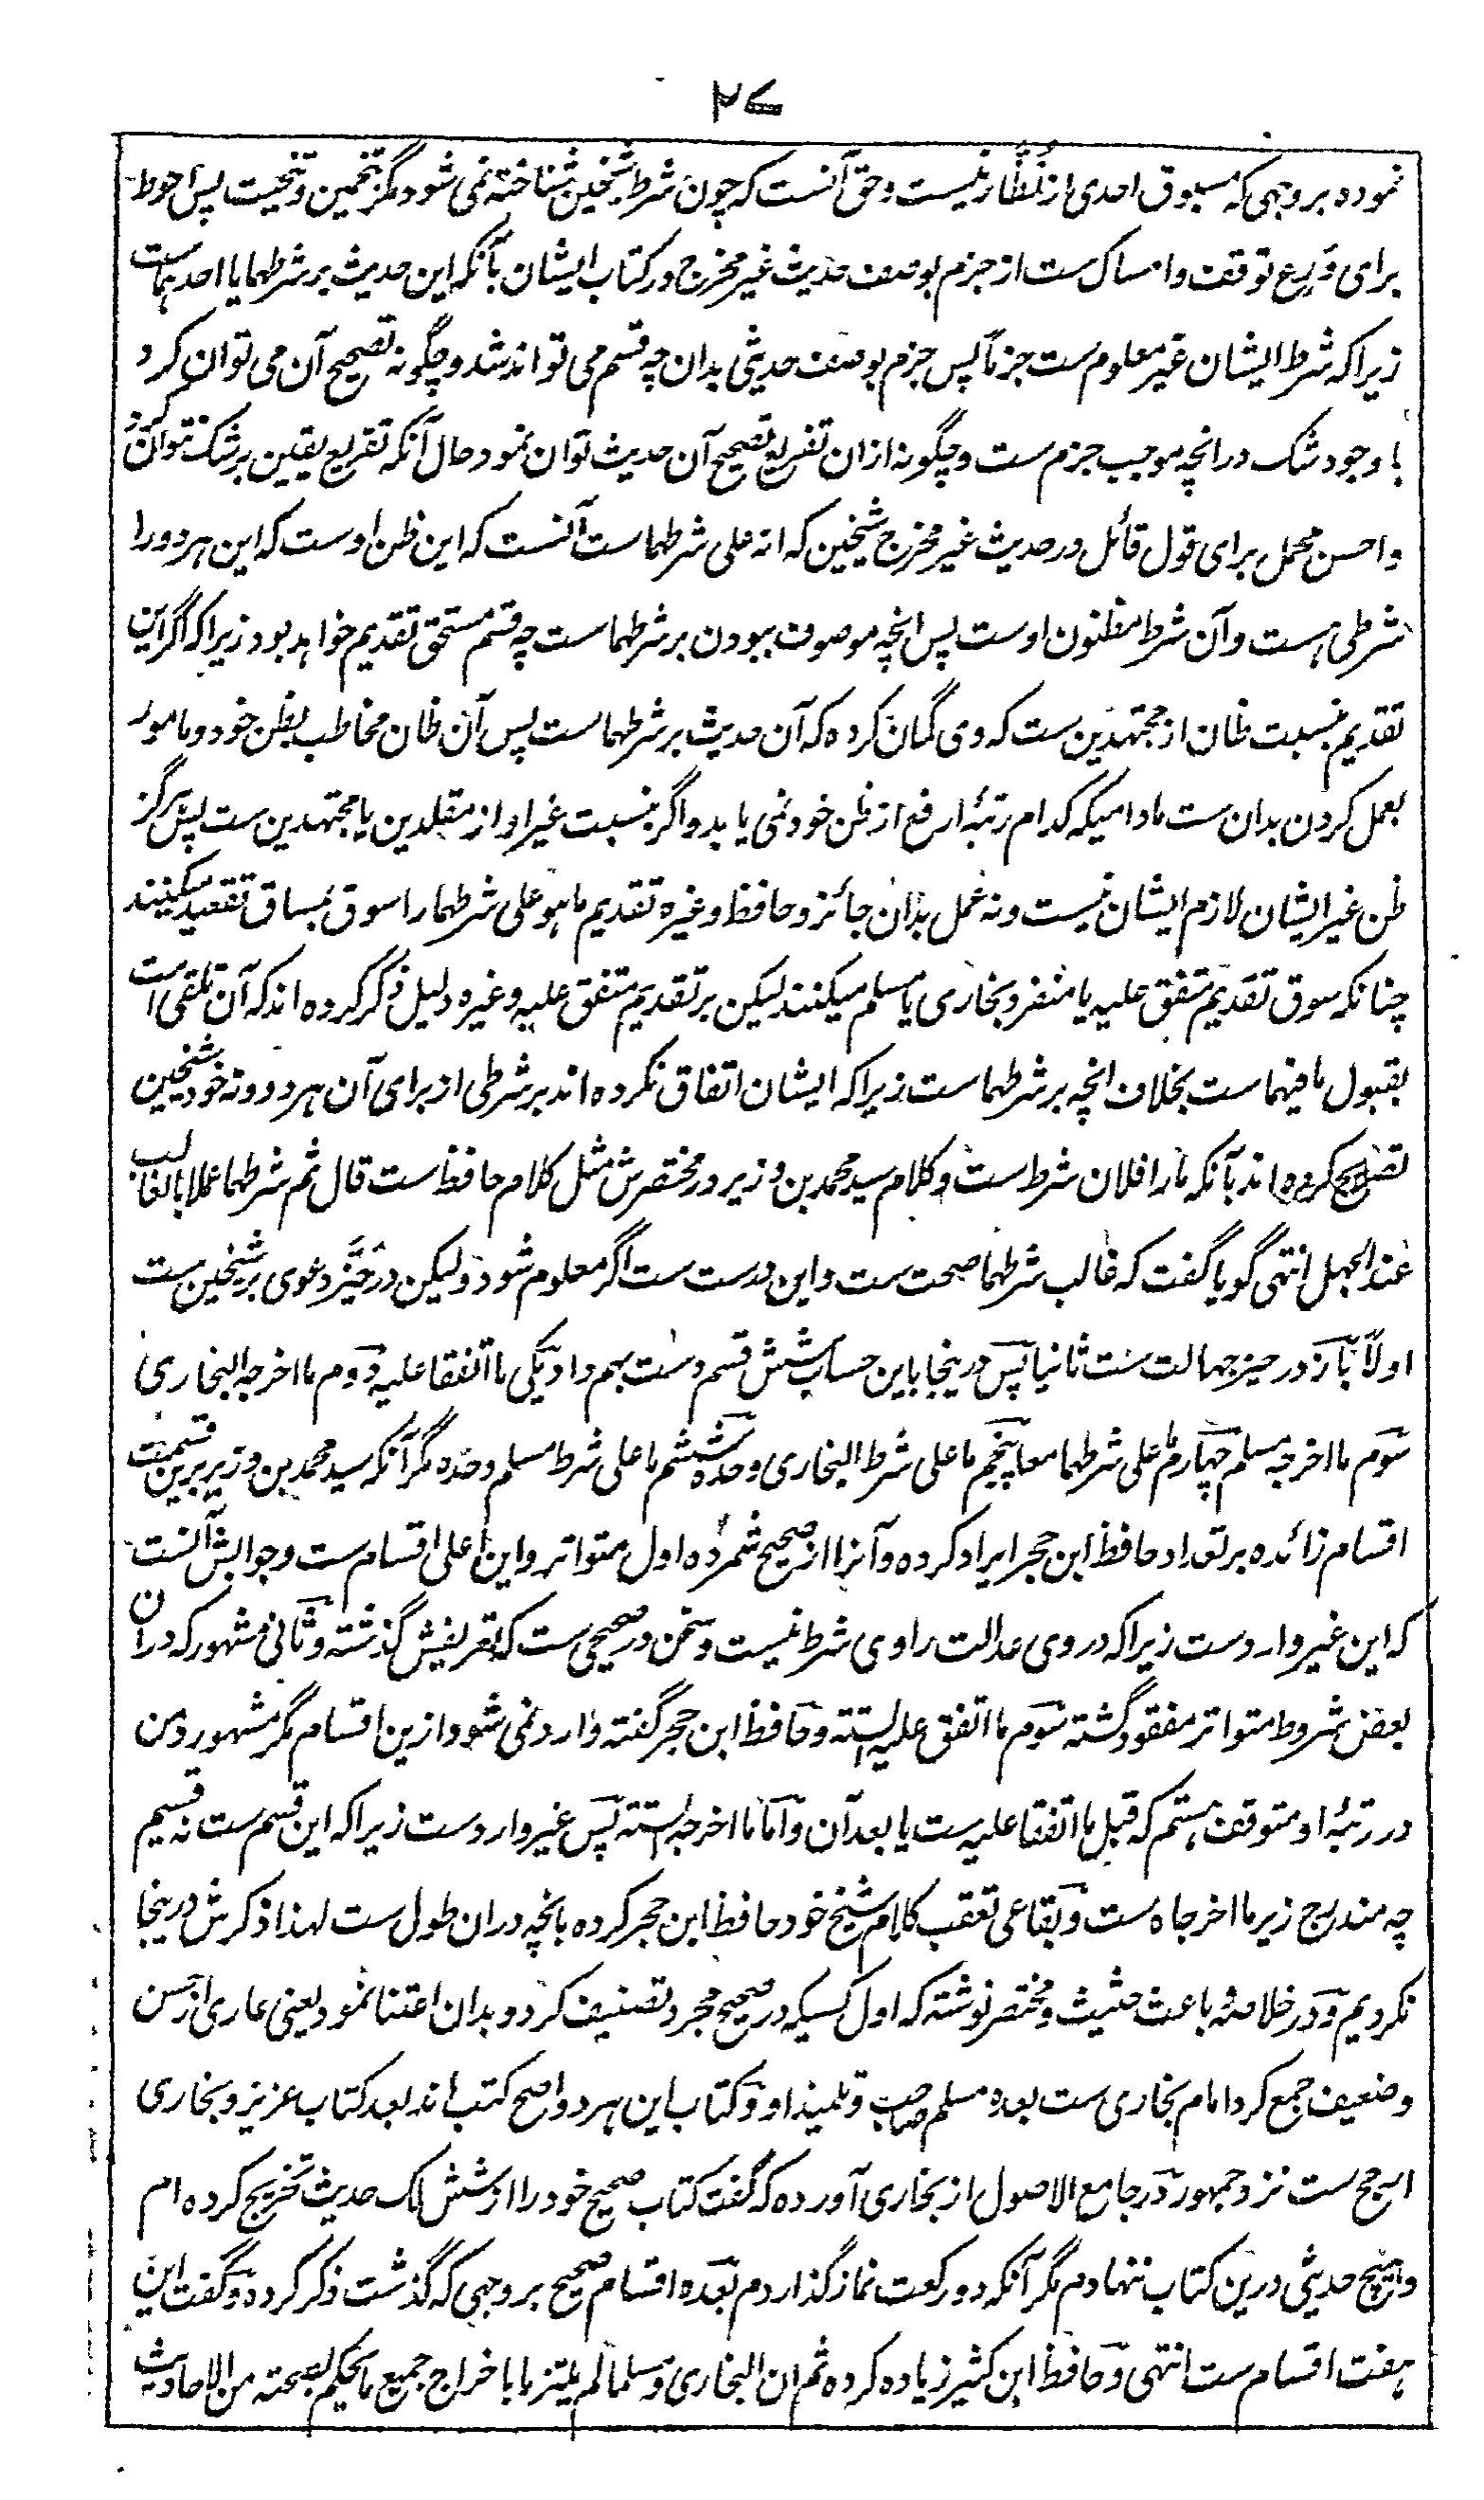 ۲۷
نموده بر وجهی که مسبوق احدی از نُظّار نیست و حق آنست که چون شرط شیخین شناخته نمی شود مگر بتخمین و تنحیت پس احوط
برای وَرِع توقف و امساک ست از جزم بوصف حدیث غیر مخرج در کتاب ایشان بآنکه این حدیث بر شرطهما یا احدهماست
زیرا که شرط ایشان غیر معلوم ست جزماً پس جزم بوصف حدیثی بدان چه قسم می تواند شد و چگونه تصحیح آن می توان کرد
با وجود شک در انچه موجب جزم ست و چگونه ازان تفریع تصحیح آن حدیث توان نمود حال آنکه تفریع یقین بر شک نتوان کرد
و احسن محمل برای قول قائل در حدیث غیر مخرج شیخین که انه علی شرطهما ست آنست که این ظن اوست که این هر دو را
شرطی هست و آن شرط مظنون اوست پس انچه موصوف ببودن بر شرطهما ست چه قسم مستحق تقدیم خواهد بود زیرا که اگر این
تقدیم بنسبت ظان از مجتهدین ست که وی گمان کرده که آن حدیث بر شرطهما ست پس آن ظان مخاطب بظن خود و مامور
بعمل کردن بدان ست مادامیکه کدام رتبهٔ ارفع از ظن خود نمی یابد و اگر بنسبت غیر او از مقلدین یا مجتهدین ست پس هرگز
ظن غیر ایشان لازم ایشان نیست و نه عمل بدان جائز و حافظ و غیره تقدیم ما هو علی شرطهما را سوق بمساق تقعید میکنند
چنانکه سوق تقدیم متفق علیه یا منفرد بخاری یا مسلم میکنند لیکن بر تقدیم متفق علیه و غیره دلیل ذکر کرده اند که آن تلقی است
بقبول ما فیهما ست بخلاف انچه بر شرطهما ست زیرا که ایشان اتفاق نکرده اند بر شرطی از برای آن هر دو و نه خود شیخین
تصریح کرده اند بآنکه ما را فلان شرط ست و کلام سید محمد بن وزیر در مختصرش مثل کلام حافظ ست قال ثم شرطهما عملا بالغالب
عند الجهل انتهی گویا گفت که غالب شرطهما صحت ست و این درست ست اگر معلوم شود و لیکن در حَیّز دعوی بر شیخین ست
اولاً باز در حیز جهالت ست ثانیا پس درینجا باین حساب شش قسم دست بهم داد یکی ما اتفقا علیه دوم ما اخرجه البخاری
سوم ما اخرجه مسلم چهارم ما علی شرطهما معا پنجم ما علی شرط البخاری وحده ششم ما علی شرط مسلم وحده مگر آنکه سید محمد بن وزیر برین قسمت
اقسام زائده بر تعداد حافظ ابن حجر ایراد کرده و آنرا از صحیح شمرده اول متواتر و این اعلی اقسام ست و جوابش آنست
که این غیر وارد ست زیرا که در وی عدالت راوی شرط نیست و سخن در صحیحی ست که تعریفش گذشته و ثانی مشهور که دران
بعض شروط متواتر مفقود گشته سوم ما اتفق علیه الستة و حافظ ابن حجر گفته وارد نمی شود ازین اقسام مگر مشهور و من
در رتبهٔ او متوقف هستم که قبل ما اتفقا علیه ست یا بعد آن و اما ما اخرجه الستة پس غیر وارد ست زیرا که این قسم ست نه قسیم
چه مندرج زیر ما اخرجاه ست و بقاعی تعقب کلام شیخ خود حافظ ابن حجر کرده بانچه دران طول ست لهذا ذکرش درینجا
نکردیم و در خلاصه و باعث حثیث و مختصر نوشته که اول کسیکه در صحیح مجرد تصنیف کرد و بدان اعتنا نمود یعنی عاری از حسن
و ضعیف جمع کرد امام بخاری ست بعده مسلم صاحب و تلمیذ او و کتاب این هر دو اصح کتب اند بعد کتاب عزیز و بخاری
ارجح ست نزد جمهور در جامع الاصول از بخاری آورده که گفت کتاب صحیح خود را از شش لک حدیث تخریج کرده ام
و هیچ حدیثی درین کتاب ننهادم مگر آنکه دو رکعت نماز گذاردم بعده اقسام صحیح بر وجهی که گذشت ذکر کرده و گفت این
هفت اقسام ست انتهی و حافظ ابن کثیر زیاده کرده ثم ان البخاری و مسلما لم یلتزما باخراج جمیع ما یحکم بصحته من الاحادیث